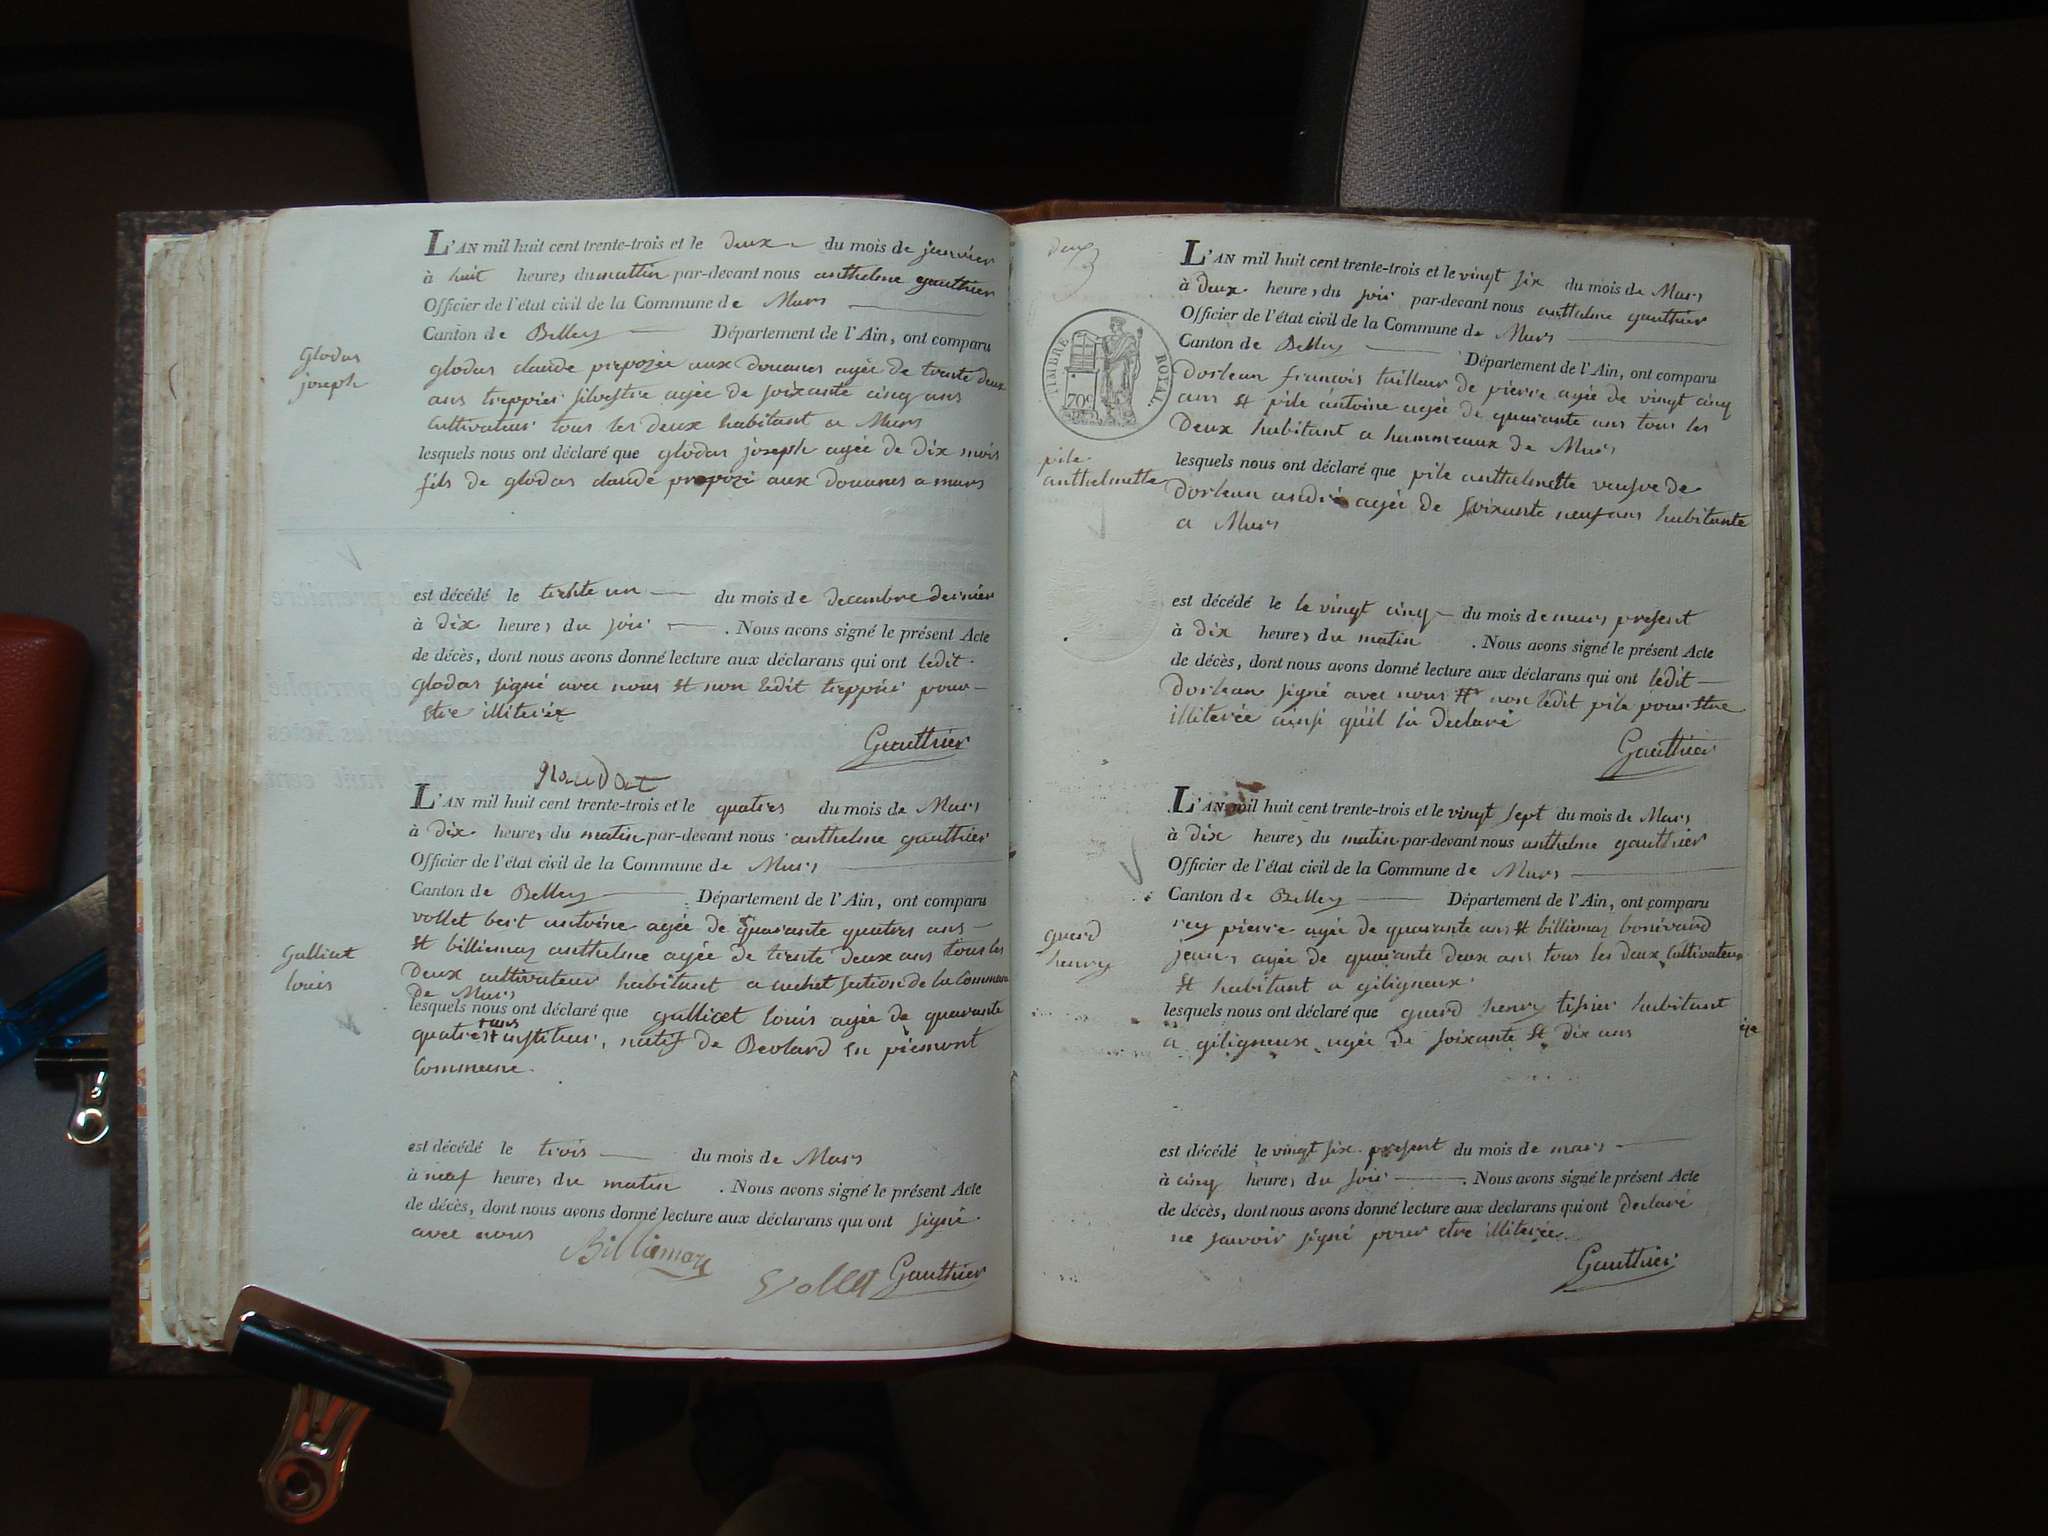 L'AN mil huit cent trente-trois et le deux du mois de janvier
à huit heures du mattin par-devant nous anthelme gauthier
Officier de l'état civil de la Commune de Murs
Canton de Belley Département de l'Ain, ont comparu
Glodas
joseph
glodas claude prepozée aux douanes agée de trente deux
ans treppier silvestre agée de soixante cinq ans
cultivateur tous les deux habitant a Murs
lesquels nous ont déclaré que glodas joseph agée de dix mois
fils de glodas claude propozé aux douanes a murs
est décédé le trente un du mois de decembre dernier
à dix heures du soir . Nous avons signé le présent Acte
de décès, dont nous avons donné lecture aux déclarans qui ont ledit
glodas signé avec nous et non ledit treppier pour
etre illiterée
Gauthier
L'AN mil huit cent trente-trois et le quatres du mois de Mars
à dix heures du matin par-devant nous anthelme gauthier
Officier de l'état civil de la Commune de Murs
Canton de Belley Département de l'Ain, ont comparu
Gallicet
louis
vollet antoine agée de quarante quatres ans
et billiemaz anthelme agée de trente deux ans tous les
deux cultivateur habitant a section de la Commune
de Murs
lesquels nous ont déclaré que gallicet louis agée de quarante
quatres ans institur, natif de Beolard en piemont
Commune.
est décédé le trois du mois de Mars
à neuf heures du matin . Nous avons signé le présent Acte
de décès, dont nous avons donné lecture aux déclarans qui ont signé
avec nous
Billiemaz
Vollet Gauthier
deux
TIMBRE ROYAL.
70c
L'AN mil huit cent trente-trois et le vingt six du mois de Mars
à deux heures du soir par-devant nous anthelme gauthier
Officier de l'état civil de la Commune de Murs
Canton de Belley Département de l'Ain, ont comparu
dorlean francois tailleur de pierre agée de vingt cinq
ans et pile antoine agée de quarante ans tous les
deux habitant a hammeaux de Murs
pile
anthelmette
lesquels nous ont déclaré que pile anthelmette veufve de
dorlean andré agée de soixante neuf ans habitante
a Murs
est décédé le le vingt cinq du mois de murs present
à dix heures du matin . Nous avons signé le présent Acte
de décès, dont nous avons donné lecture aux déclarans qui ont ledit
dorlean signé avec nous et non ledit pile pour etre
illiterée ainsi qu'il la declaré
Gauthier
L'AN mil huit cent trente-trois et le vingt sept du mois de Mars
à dix heures du matin par-devant nous anthelme gauthier
Officier de l'état civil de la Commune de Murs
Canton de Belley Département de l'Ain, ont comparu
guerd
henry
rey pierre agée de quarante ans et billiemaz bonivard
jean, agée de quarante deux ans tous les deux cultivateur
et habitant a giligneux
lesquels nous ont déclaré que guerd henry tissier habitant
a giligneux agée de soixante et dix ans
est décédé le vingt six present du mois de mars
à cinq heures du soir . Nous avons signé le présent Acte
de décès, dont nous avons donné lecture aux déclarans qui ont declaré
ne savoir signé pour etre illiterée
Gauthier